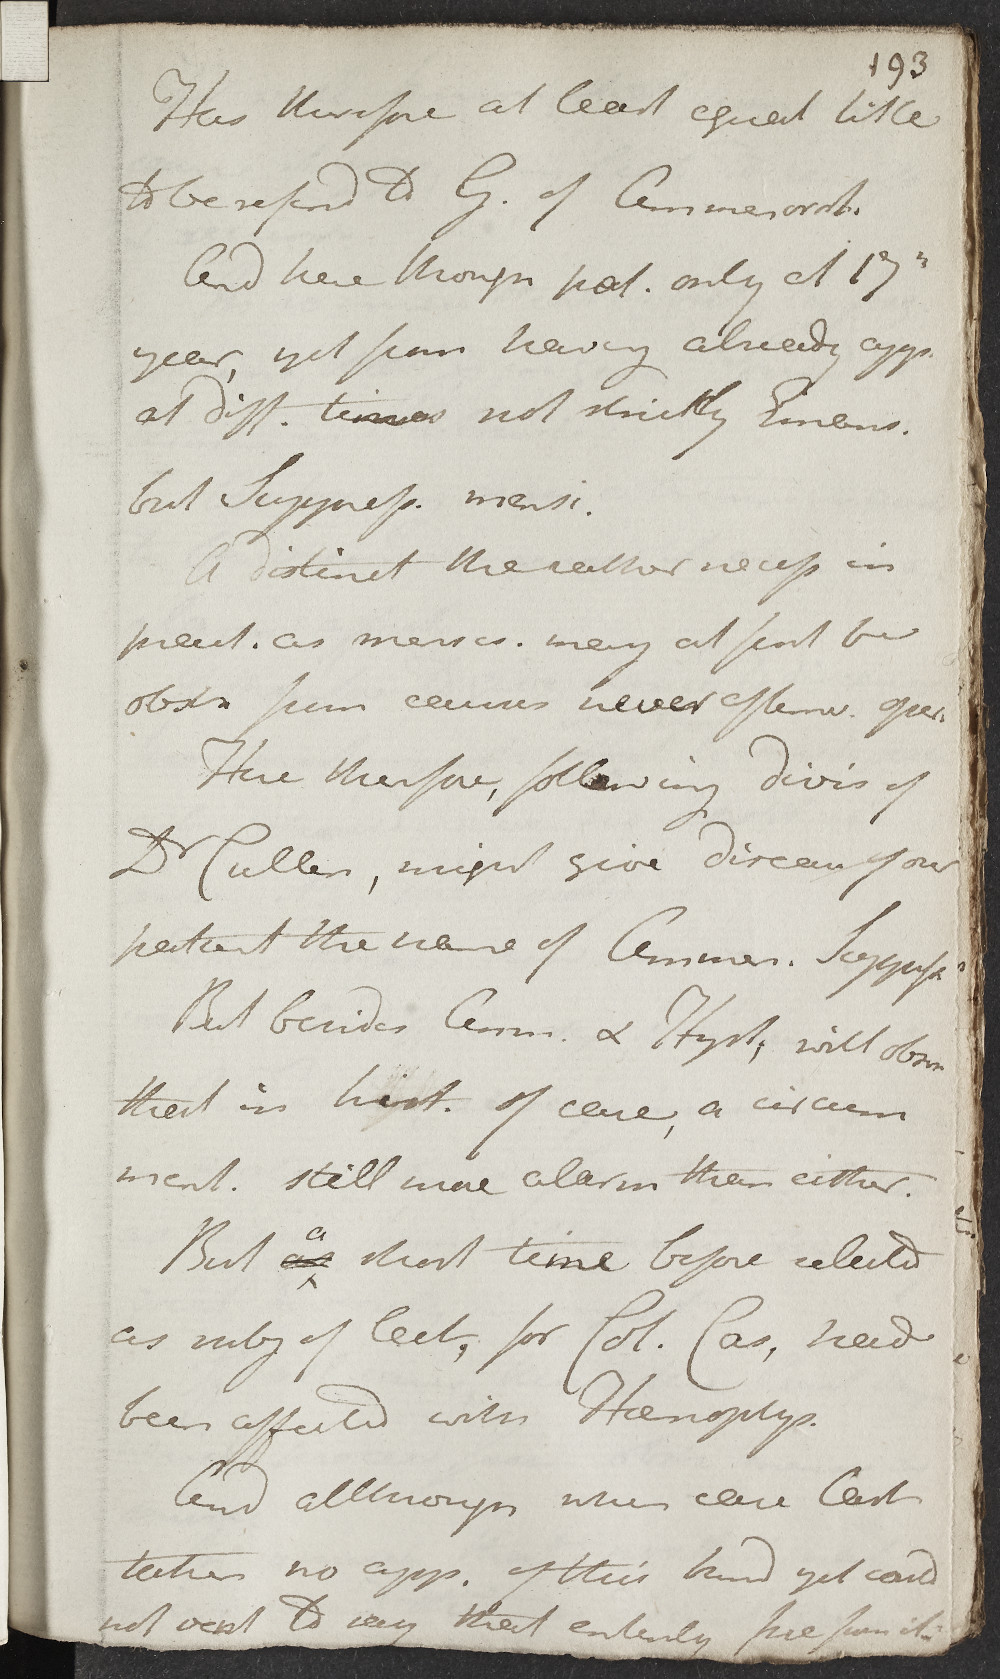 193
Has therefore at least equal title
to be referd to G. of Amenorrh.
And here though pat. only at 17th
year, yet from having already app.
at diff. times not strictly Emans.
but Suppress. mensi.
A distinct the rather necess in
pract. as menses. may at first be
obstr from causes never afterw. oper.
Here therefore, following divis of
Dr Cullen, might give disease of our
patient the name of Amenor. Suppress
But besides Amen. & Hyst, will observ
that in hist. of case, a circum
ment. still more alarm than either.
But as a short time before selected
as subj of lect, for Col. Cas, had
been affected with Hæmoptys.
And allthough when case last
taken no app. of this kind yet could
not vent to say that entirely free from it